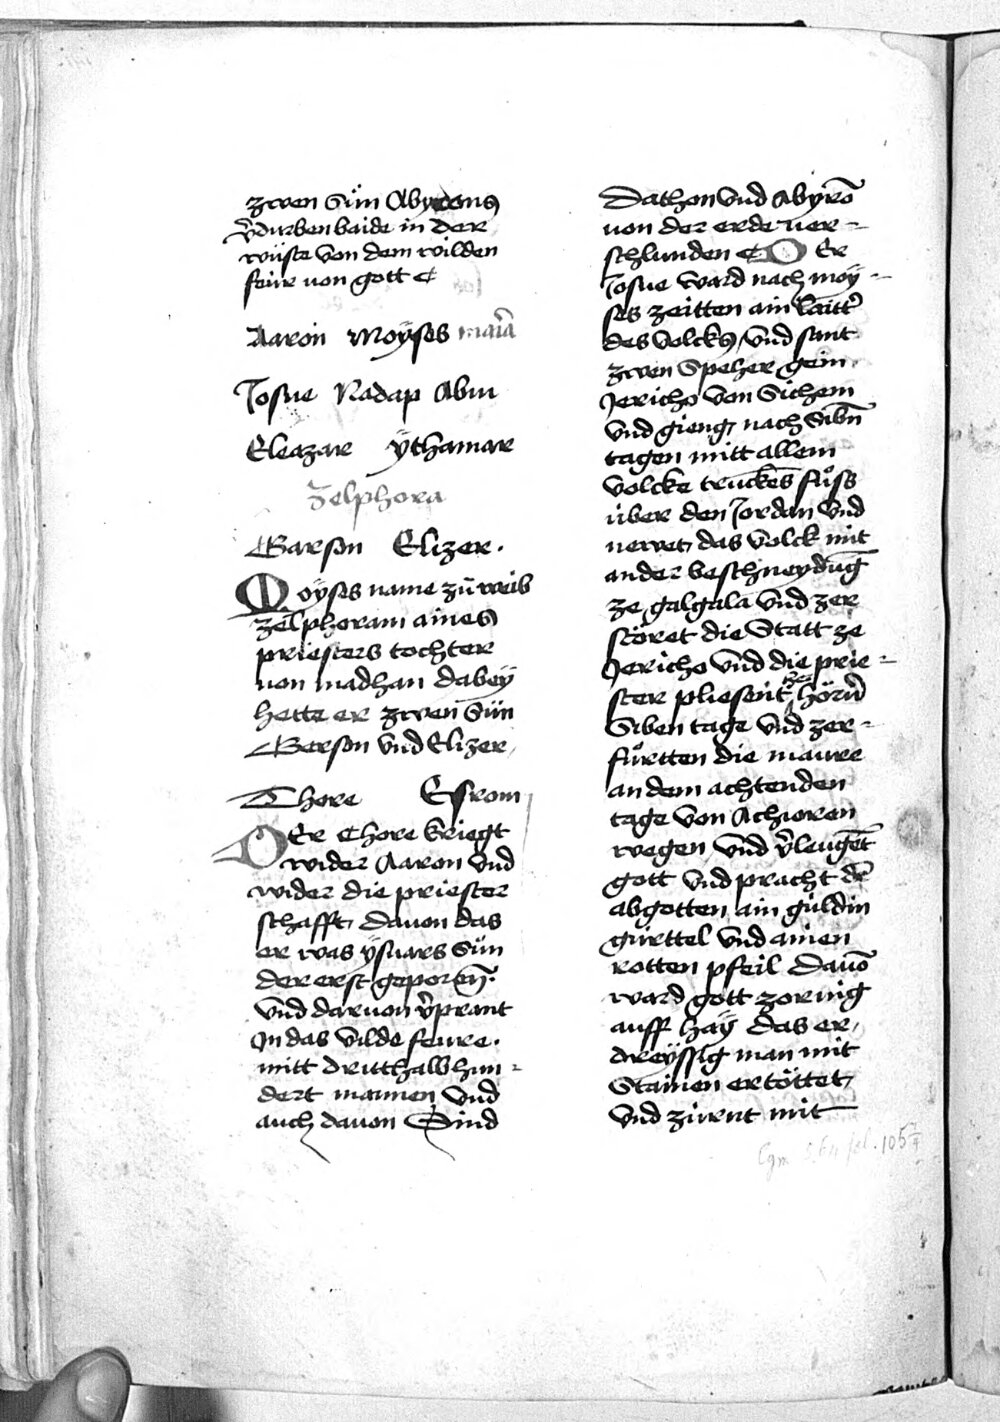 zwen Sün Abyrons
v̄durben baide in der
wüste von dem wilden
feür von gott
Aaron Moÿses maīa
Josue Nadap Abiu
Eleazar ÿthamar
Zelphora
Garson Elizer.
Moÿses name zū weib
zelphoram aines
priesters tochter
von madhan dabeÿ
hette er zwen Sün
Gerson vnd Elizer
Chore Esrom
DEr Chore kriegt
wider Aaron vnd
wider die priester
schafft, dauon das
er was ÿsuars Sün
der erst geporen̄.
vnd daruon v̄prant
In das wilde feure.
mitt dritthalbhun-
dert mannen vnd
auch dauon Sind
Dathan vnd Abyrō
von der erde ver-
schlunden DEr
Josue ward nach moÿ-
ses zeitten ain laitt͛
des volcks, vnd sant
zwen Speher gein
Jericho von Sichem
vnd gieng, nach Sibn̄
tagen mitt allem
volcke truckēs fůss
über den Jordan vnd
newet, das volck mit
ander beschneydūg
ze galgala vnd zer
störet die Statt ze
Jericho vnd die prie-
ster pliesent ze hörn͛
Siben tage vnd zer-
fůrtten die maure
an dem achtenden
tage von Achioren
wegen vnd v̄leugēt
gott vnd pracht dē
abgotten ain güldin
gürttel vnd ainen
rotten pfeil dauō
ward gott zornig
auff haÿ das er,
dreÿssig man mit
Stainen ertöttet,
vnd zürnt mit
Cgm fol. 105